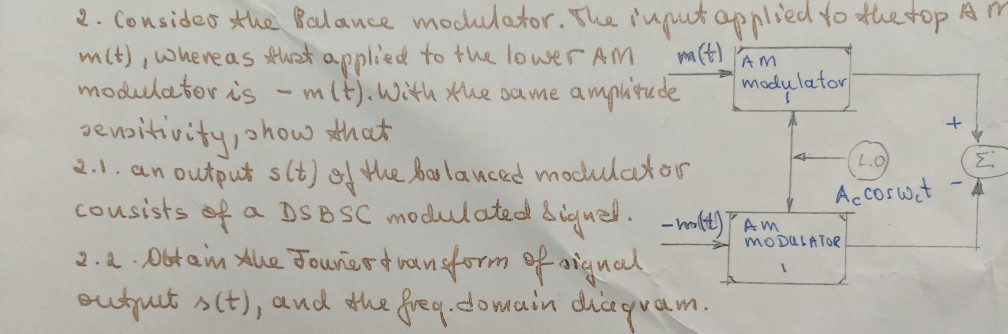 2. Consider the Balance modulator. The input applied to the top AM
m(t), whereas that applied to the lower AM
modulator is - m(t). With the same amplitude
sensitivity, show that
2.1. an output s(t) of the balanced modulator
consists of a DSBSC modulated signal.
2.2. Obtain the Fourier transform of signal
output s(t), and the freq. domain diagram.
m(t)
AM
modulator
1
+
L.O
Σ
Ac cos wct
-
-m(t)
AM
MODULATOR
1